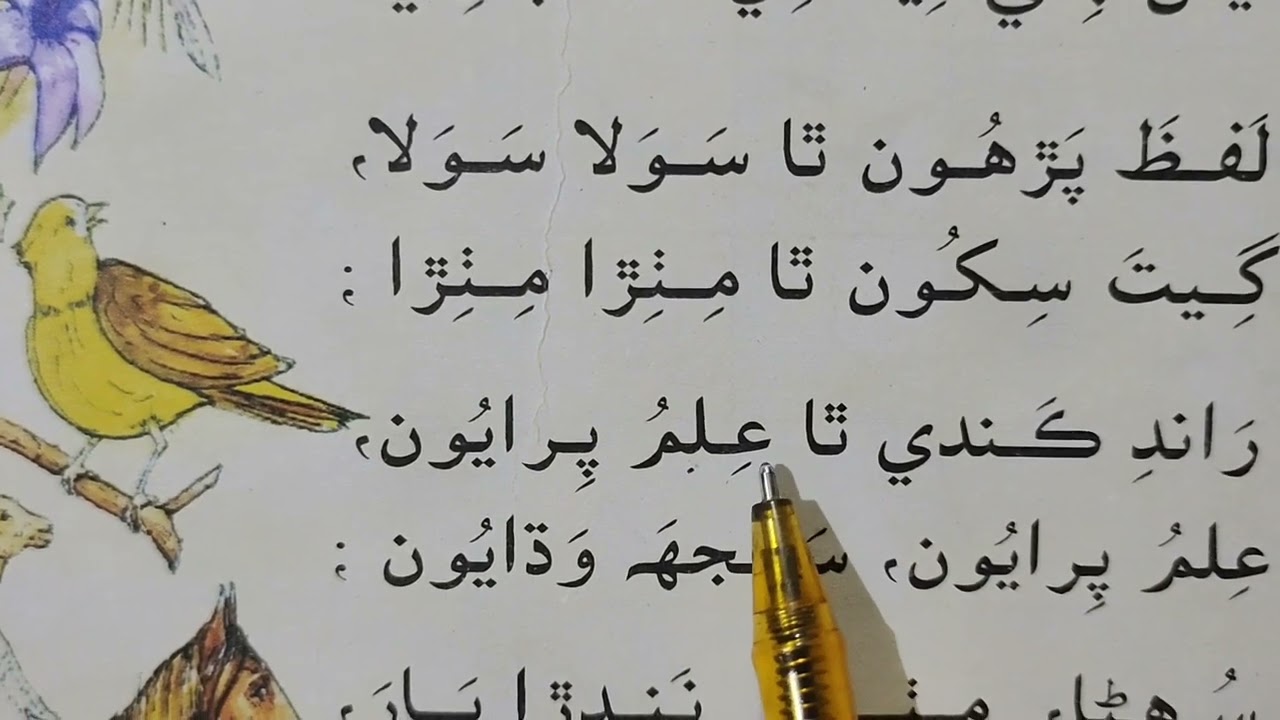 لَفظَ پَڙهُون ٿا سَوَلا سَوَلا،
گِيتَ سِکُون ٿا مِٺِڙا مِٺِڙا ؛
رَاندِ ڪَندي ٿا عِلِمُ پِرايُون،
عِلمُ پِرايُون، وَڌايُون ؛
نَنڍِڙا ٻارَ،